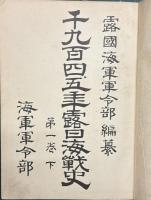 露國海軍軍令部編纂
千九百四、五年露日海戰史
第一卷下
海軍軍令部